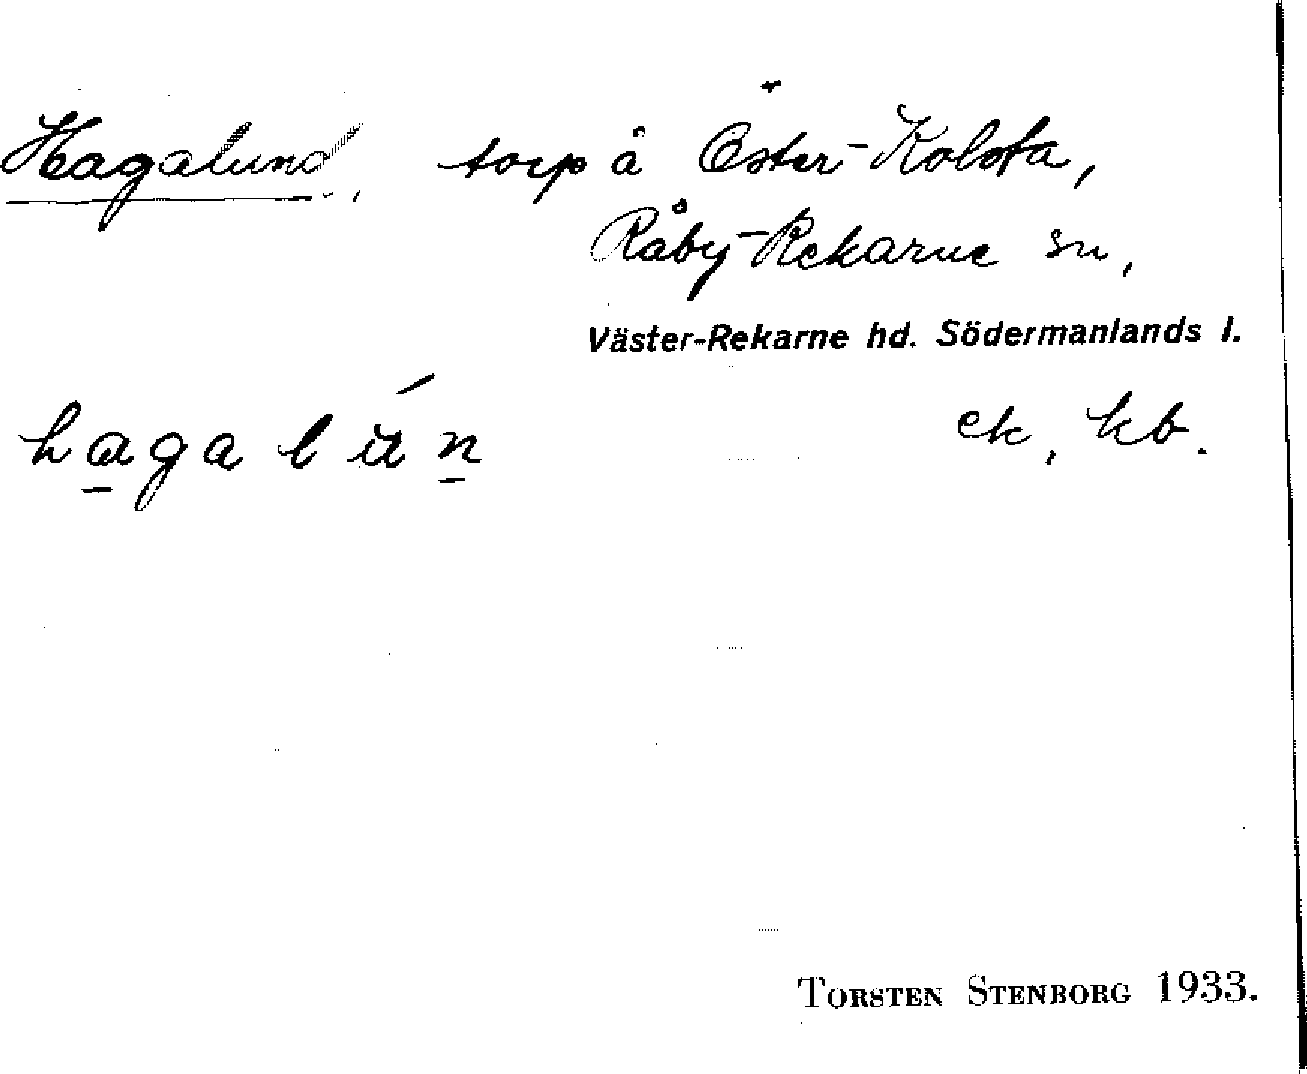 Hagalund, torp å Öster-Kolsta,
Råby-Rekarne sn,
Väster-Rekarne hd. Södermanlands l.
hagalún ek, kb.
TORSTEN STENBORG 1933.